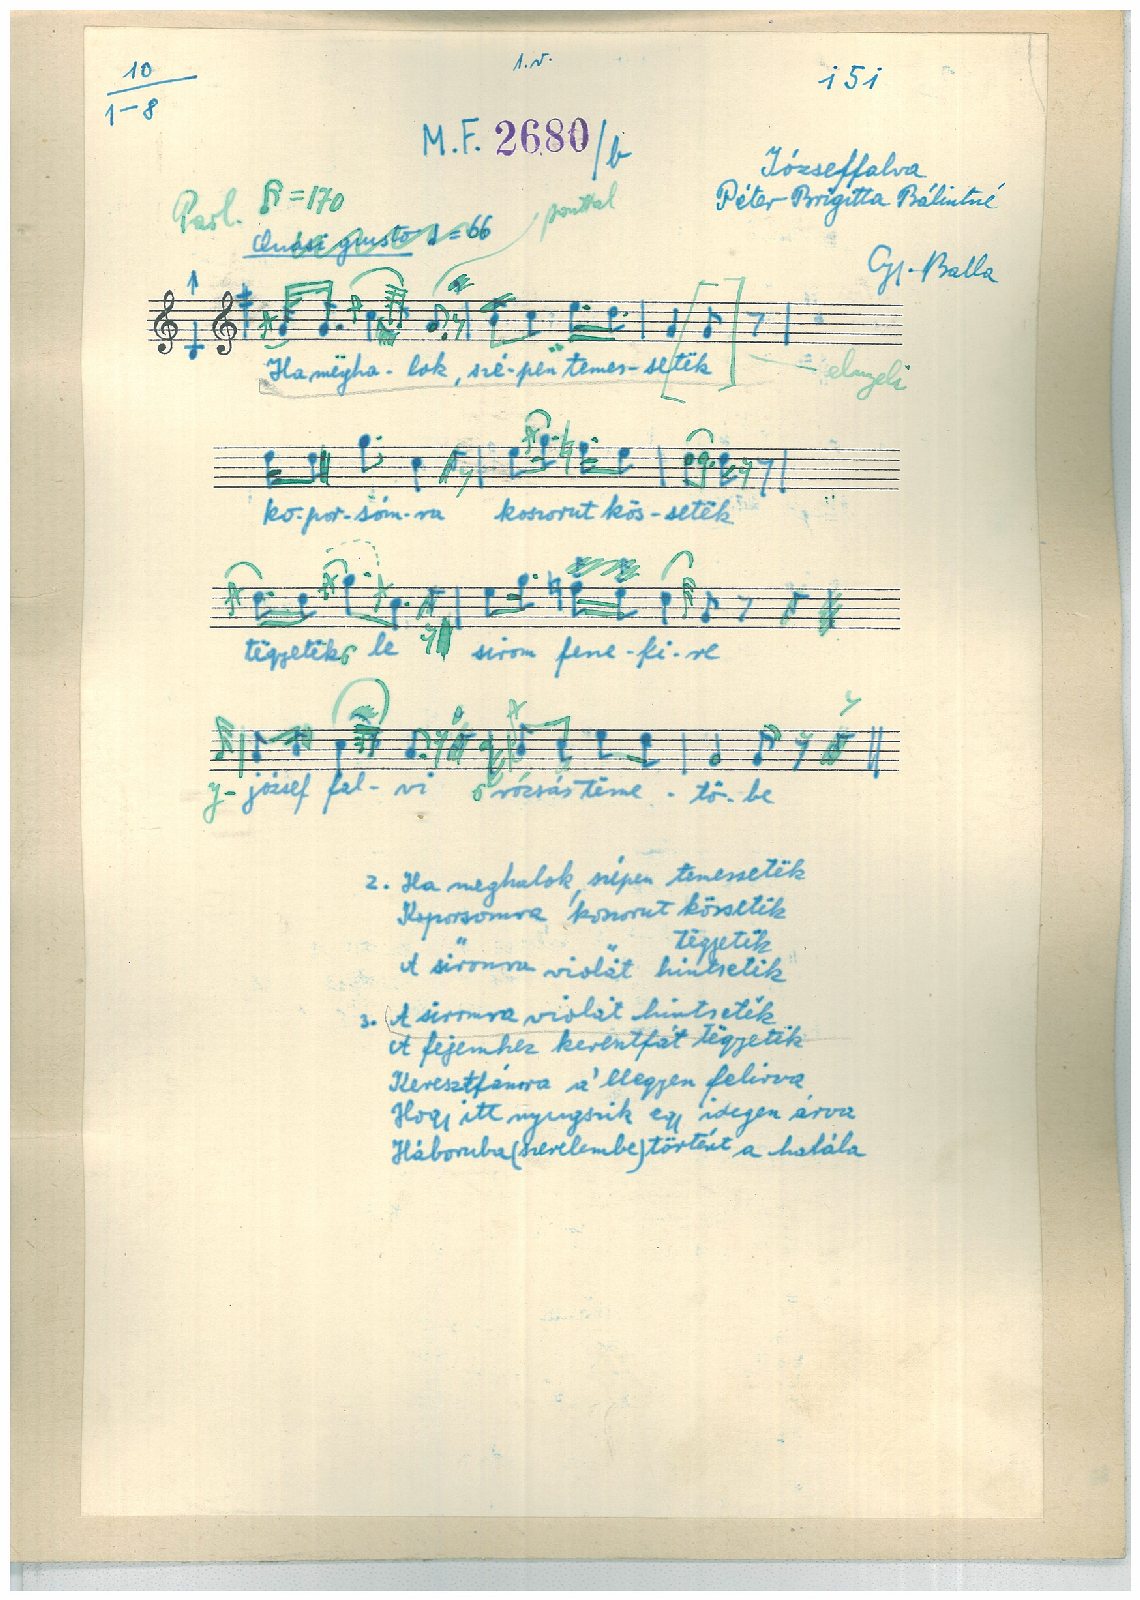 10
1-8
1.v.
i 5 i
M.F. 2680/b
Józseffalva
Péter Brigitta Bálintné
Gy. Balla
Parl. ♪=170
Quasi giusto ♩=66
ponttal
Ha mëgha-lok, szé-pen temes-setëk
elnyeli
ko-por-sóm-ra koszorut kös-setëk
tëgyetëk le sirom fene-ki-re
y-józsef fal-vi rózsás tëme-tö-be
2. Ha meghalok, szépen temessetëk
Koporsomra koszorut kössetëk
tëgyetëk
A siromra violát hintsetëk
3. A siromra violát hintsetëk
A fejemhez kerentfát tëgyetëk
Keresztfámra a' llegyen felirva
Hogy itt nyugszik egy idegen árva
Háboruba (szerelembe) történt a halála